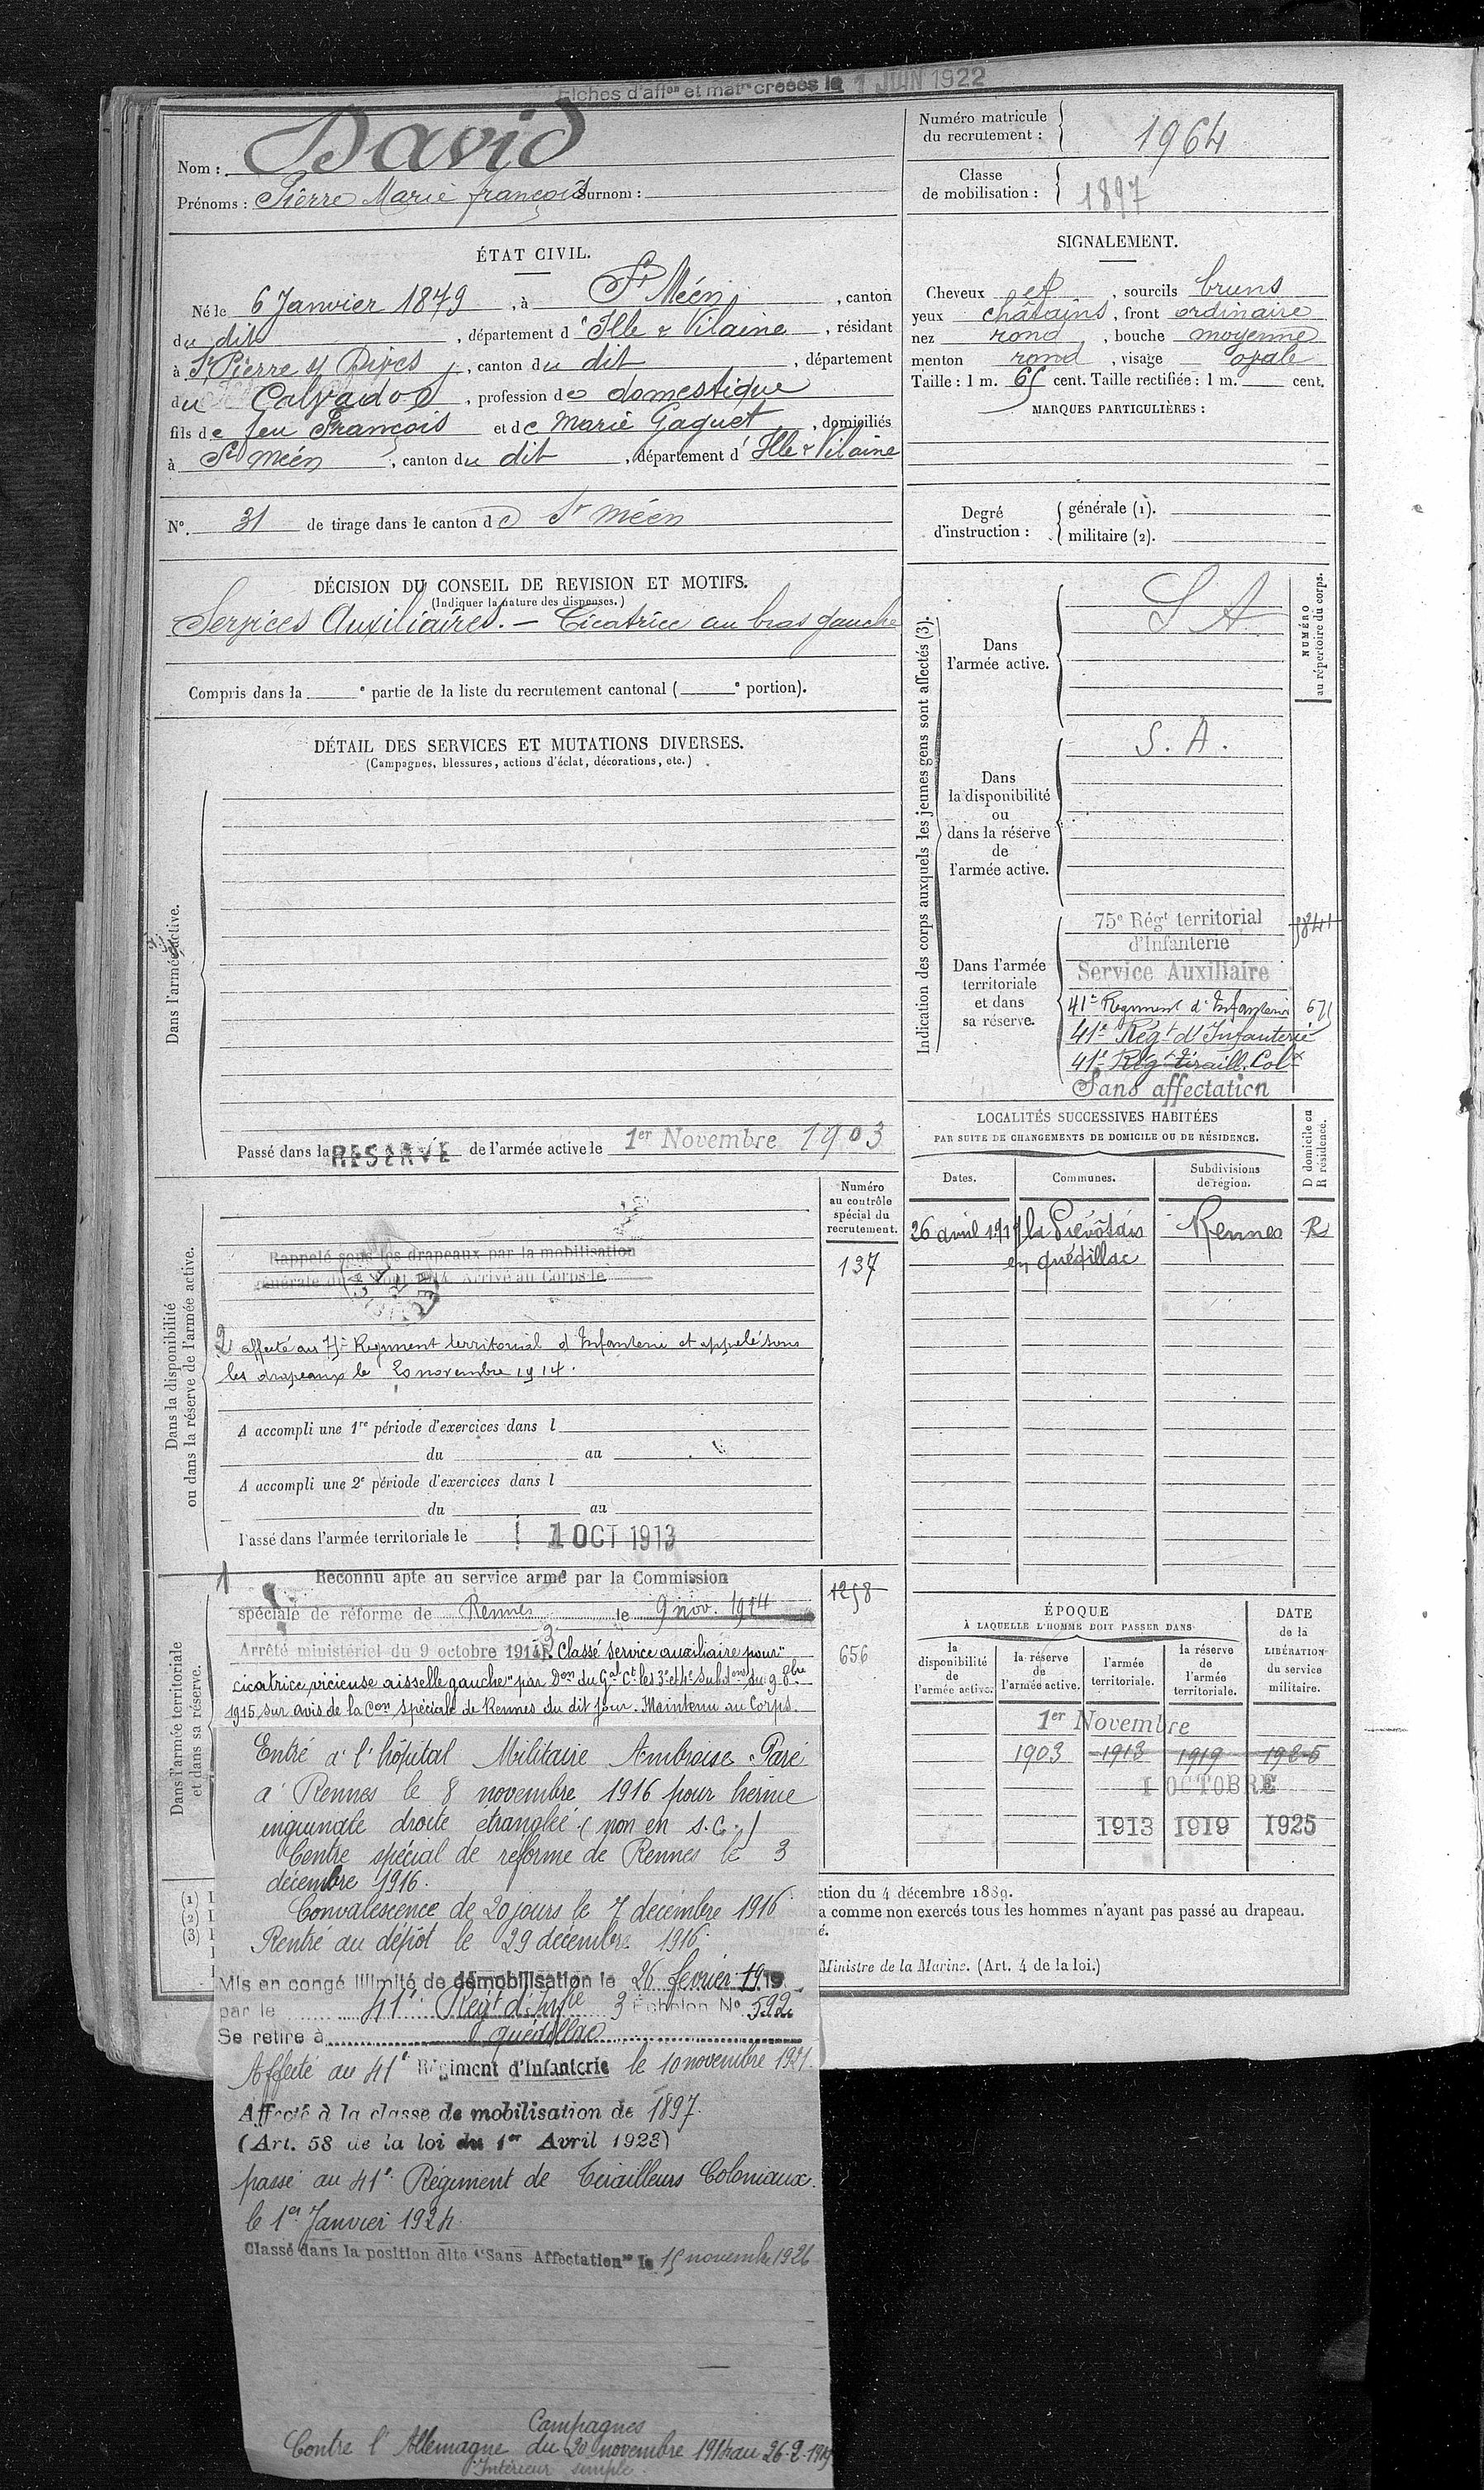 Fiches d'affon et matle créées le 1 JUIN 1922
Nom : David
Prénoms : Pierre Marie françois Surnom :
Numéro matricule du recrutement : 1964
Classe de mobilisation : 1897
ÉTAT CIVIL.
Né le 6 Janvier 1879, à St Méen, canton
du dit, département d'Ille & Vilaine, résidant
à St Pierre s/ Dives, canton du dit, département
du Calvados, profession de domestique
fils de feu François et de Marie Gaquet, domiciliés
à St Méen, canton du dit, département d'Ille & Vilaine
N° 31 de tirage dans le canton de St Méen
SIGNALEMENT.
Cheveux et, sourcils bruns
yeux châtains, front ordinaire
nez rond, bouche moyenne
menton rond, visage ovale
Taille : 1 m. 65 cent. Taille rectifiée : 1 m. cent.
MARQUES PARTICULIÈRES :
Degré d'instruction : générale (1).
militaire (2).
DÉCISION DU CONSEIL DE REVISION ET MOTIFS.
(Indiquer la nature des dispenses.)
Services Auxiliaires. — Cicatrice au bras gauche
Compris dans la e partie de la liste du recrutement cantonal ( e portion).
DÉTAIL DES SERVICES ET MUTATIONS DIVERSES.
(Campagnes, blessures, actions d'éclat, décorations, etc.)
Dans l'armée active.
Passé dans la RESERVE de l'armée active le 1er Novembre 1903
Indication des corps auxquels les jeunes gens sont affectés (3).
NUMÉRO au répertoire du corps.
Dans l'armée active.
S A
Dans la disponibilité ou dans la réserve de l'armée active.
S. A.
Dans l'armée territoriale et dans sa réserve.
75e Régt territorial
d'Infanterie
Service Auxiliaire
41e Regiment d'Infanterie
41e Régt d'Infanterie
41e Régt tiraill. Colx
Sans affectation
LOCALITÉS SUCCESSIVES HABITÉES
PAR SUITE DE CHANGEMENTS DE DOMICILE OU DE RÉSIDENCE.
Dates. Communes. Subdivisions de région. D domicile ou R résidence.
26 avril 1919 la Prévôtais Rennes R
en quédillac
Dans la disponibilité ou dans la réserve de l'armée active.
Numéro au contrôle spécial du recrutement.
137
Rappelé sous les drapeaux par la mobilisation
générale du Arrivé au Corps le
2 affecté au 75e Regiment territorial d'Infanterie et appelé sous
les drapeaux le 20 novembre 1914.
A accompli une 1re période d'exercices dans l
du au
A accompli une 2e période d'exercices dans l
du au
Passé dans l'armée territoriale le 1 OCT 1913
Dans l'armée territoriale et dans sa réserve.
1 Reconnu apte au service armé par la Commission
spéciale de réforme de Rennes le 9 nov. 1914
1258
656
Arrêté ministériel du 9 octobre 1914
3 Classé service auxiliaire pour "
cicatrice vicieuse aisselle gauche" par Don du Gal Ct les 3e et 4e Subdons du 9 8bre
1915, sur avis de la Con spéciale de Rennes du dit jour. Maintenu au Corps.
Entré à l'hôpital Militaire Ambroise Paré
à Rennes le 8 novembre 1916 pour hernie
inguinale droite étranglée (non en s.c.)
Centre spécial de réforme de Rennes le 3
décembre 1916.
Convalescence de 20 jours le 7 decembre 1916
Rentré au dépôt le 29 décembre 1916.
Mis en congé illimité de démobilisation le 26 fevrier 1919
par le 41e Regt d'Infie 3 Echelon N° 592
Se retire à quédillac
Affecté au 41e Régiment d'Infanterie le 10 novembre 1921.
Affecté à la classe de mobilisation de 1897
(Art. 58 de la loi du 1er Avril 1923)
passé au 41e Régiment de Tirailleurs Coloniaux.
le 1er Janvier 1924
Classé dans la position dite "Sans Affectation" le 15 novembre 1926
Campagnes
Contre l'Allemagne du 20 novembre 1914 au 26-2-1919
Intérieur simple.
ÉPOQUE
À LAQUELLE L'HOMME DOIT PASSER DANS
DATE de la LIBÉRATION du service militaire.
la disponibilité de l'armée active.
la réserve de l'armée active.
l'armée territoriale.
la réserve de l'armée territoriale.
1er Novembre
1903 1913 1919 1925
1 OCTOBRE
1913 1919 1925
(1)
(2)
(3)
ction du 4 décembre 1889.
a comme non exercés tous les hommes n'ayant pas passé au drapeau.
é.
Ministre de la Marine. (Art. 4 de la loi.)